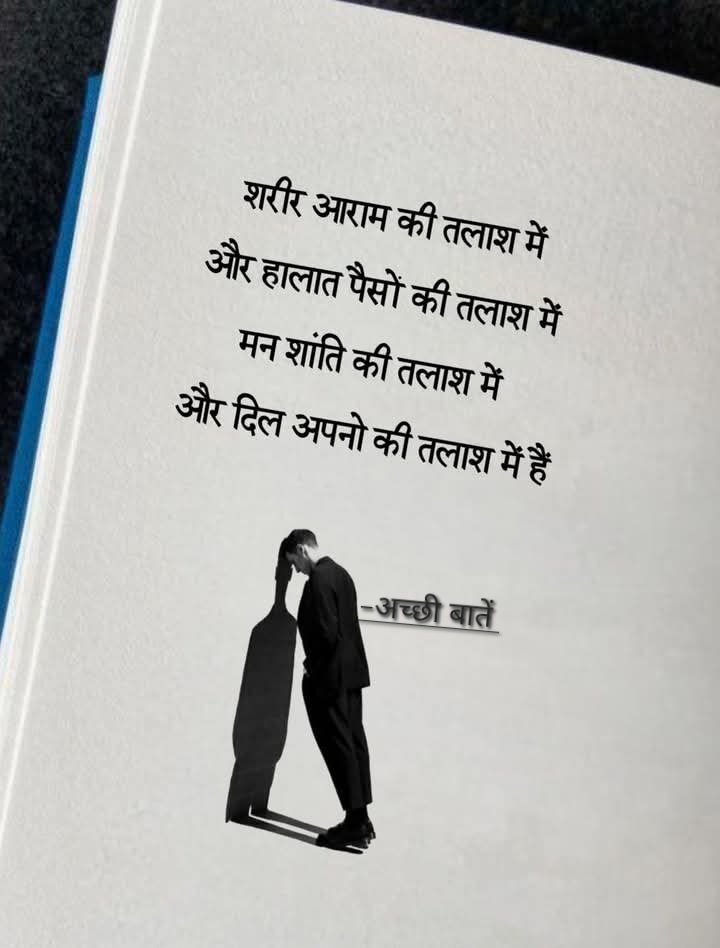 शरीर आराम की तलाश में
और हालात पैसों की तलाश में
मन शांति की तलाश में
और दिल अपनो की तलाश में हैं
-अच्छी बातें